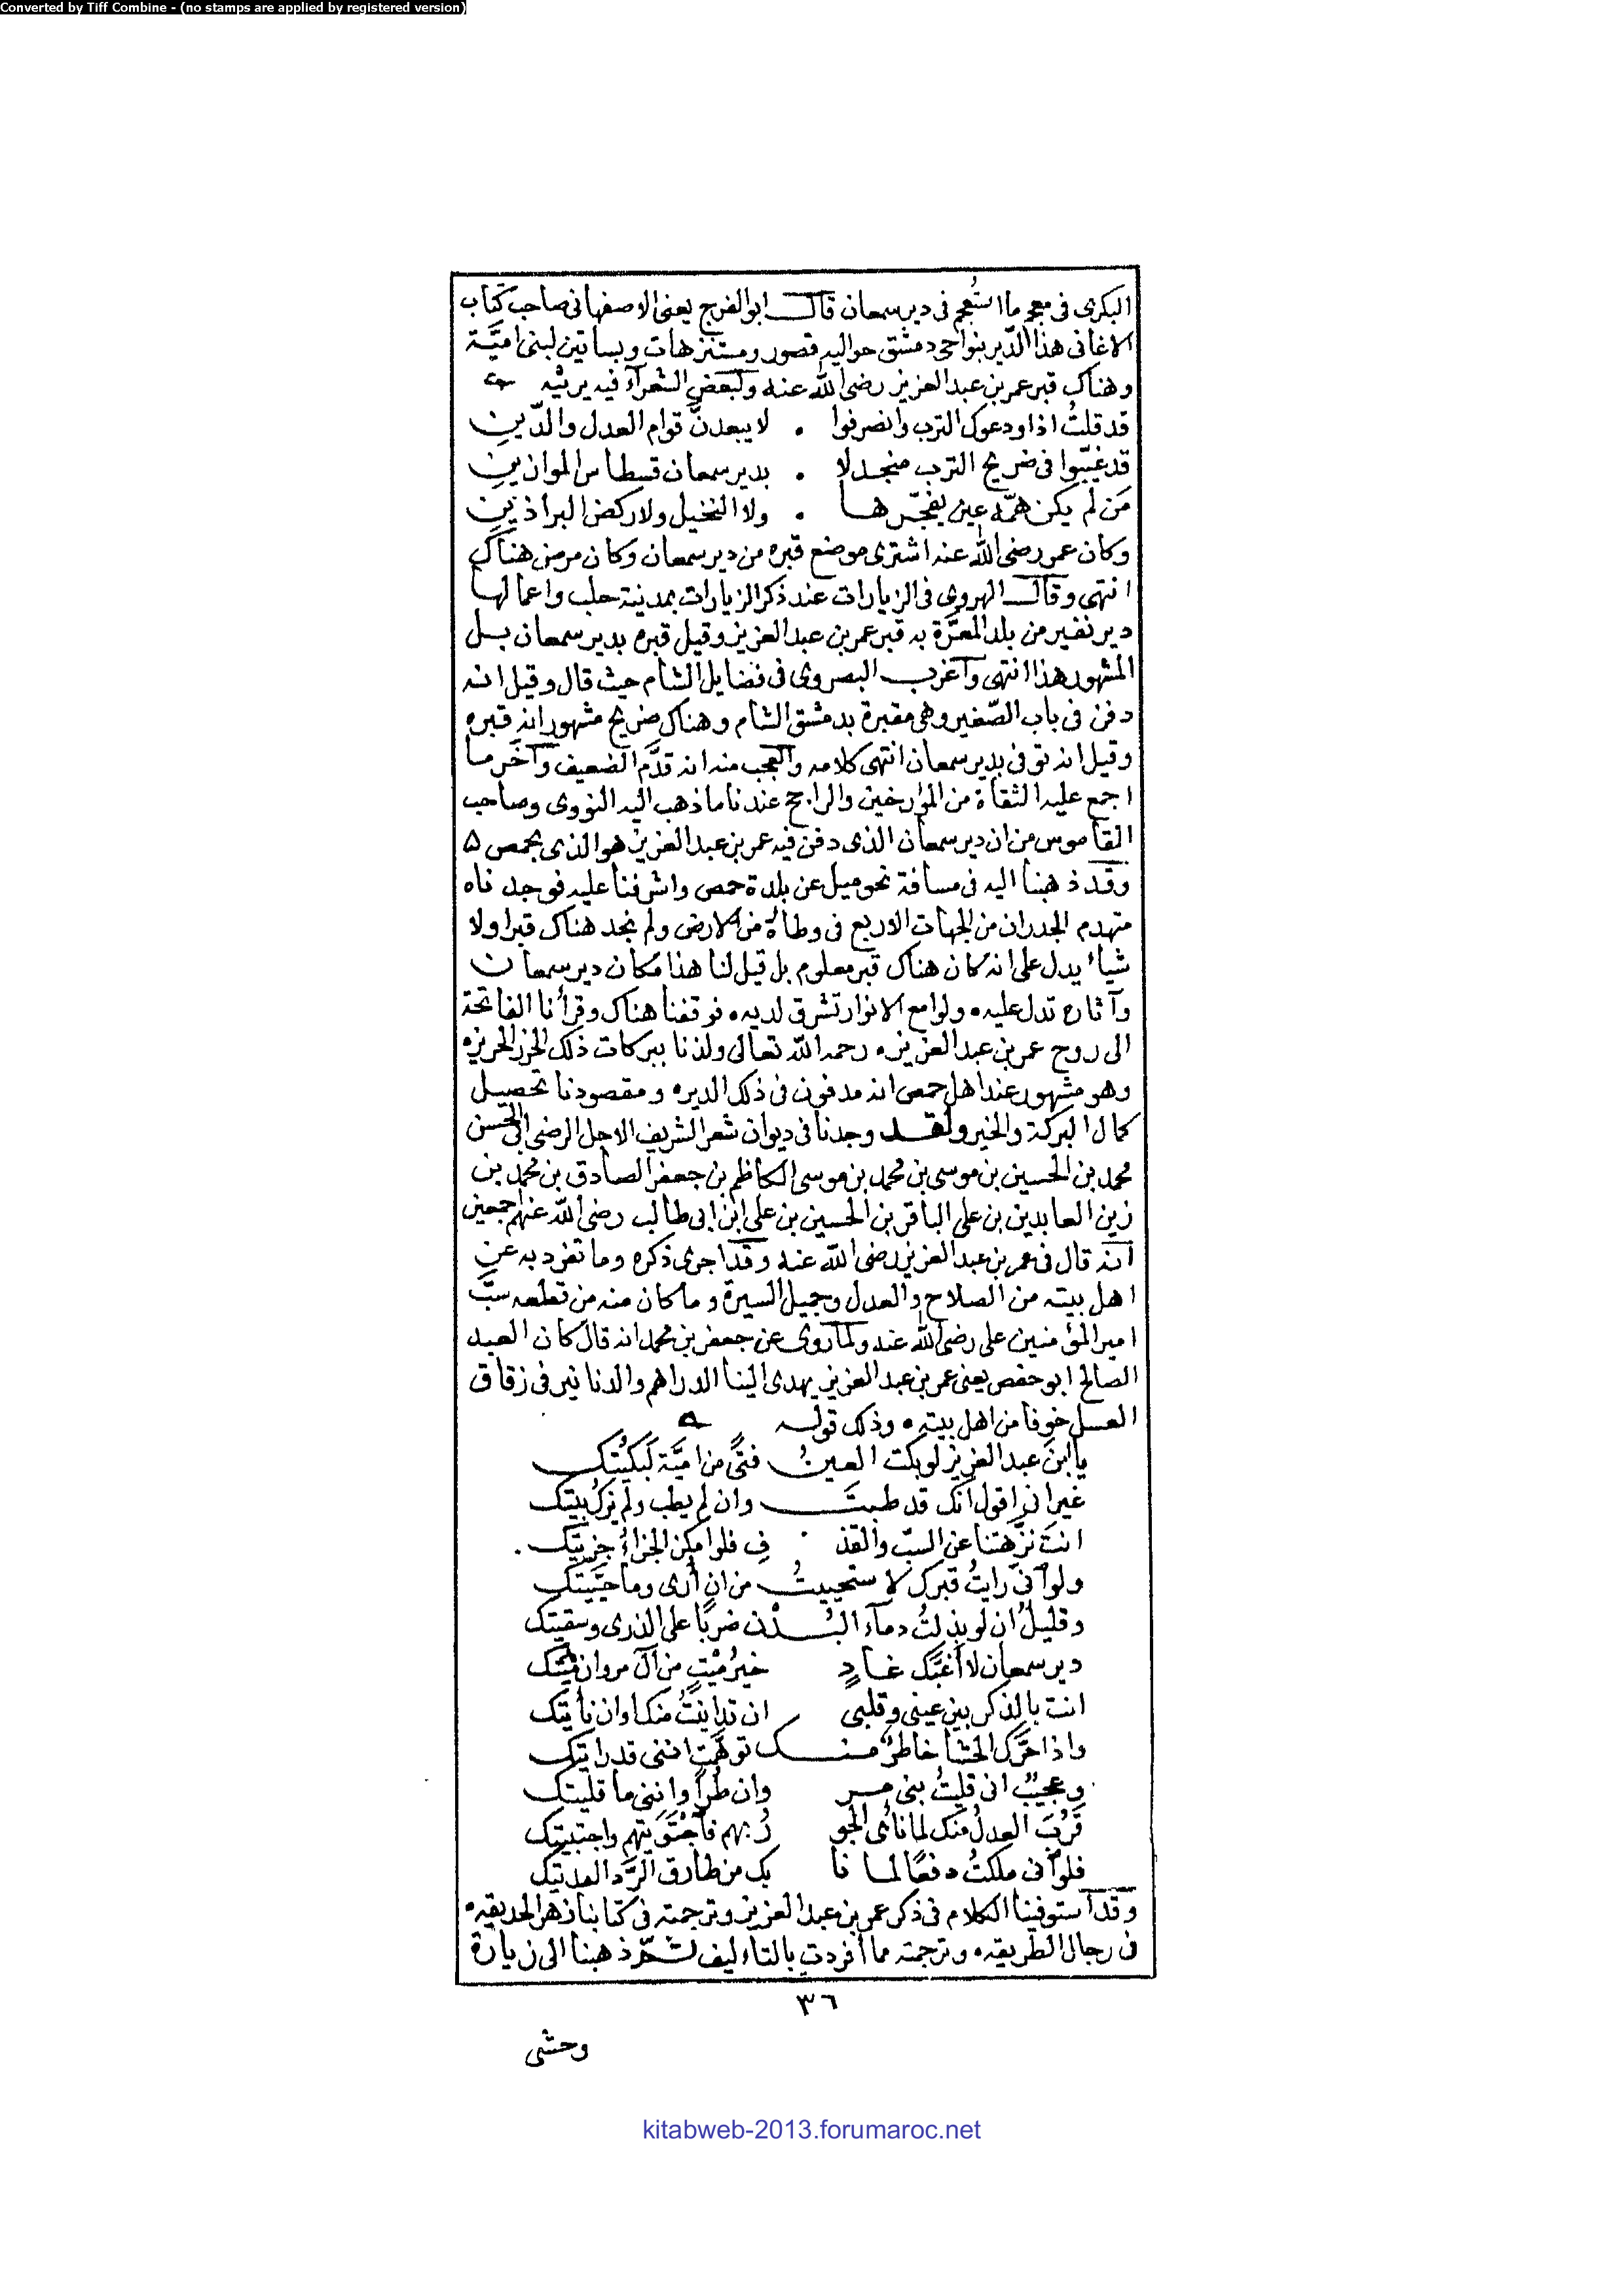 Converted by Tiff Combine - (no stamps are applied by registered version)
البكرى فى معجم ما استُعجم فى دير سمعان قال ابو الفرج يعنى الاصفهانى صاحب كتاب
الاغانى هذا الدّير بنواحى دمشق حواليه قصور ومستنزهات وبساتين لبنى اميَّة
وهناك قبر عمر بن عبد العزيز رضى الله عنه ولبعض الشعرآء فيه يرثيه
قد قلتُ اذ اودعوك الترب وانصرفوا . لا يبعدنَّ قوام العدل والدّينِ
قد غيّبوا فى ضريح الترب منجدلا . بدير سمعان قسطاس الموازينِ
مَن لم يكن همّه عين يفجّرها . ولا النخيل ولا ركض البراذينِ
وكان عمر رضى الله عنه اشترى موضع قبره من دير سمعان وكان مرض هناك
انتهى وقال الهروى فى الزيارات عند ذكر الزيارات بمدينة حلب واعمالها
دير نقير من بلد المعرَّة به قبر عمر بن عبد العزيز وقيل قبره بدير سمعان بل
المشهور هذا انتهى وآغرب البصروى فى فضايل الشام حيث قال وقيل انه
دفن فى باب الصّغير وهى مقبرة بدمشق الشام وهناك ضريح مشهور انه قبره
وقيل انه توفى بدير سمعان انتهى كلامه والعجب منه انه قدَّم الضعيف وآخّر ما
اجمع عليه الثقاة من المؤرخين والراجح عندنا ما ذهب اليه النووى وصاحب
القاموس من ان دير سمعان الذى دفن فيه عمر بن عبد العزيز هو الذى بحمص ۵
وقد ذهبنا اليه فى مسافة نحو ميل عن بلدة حمص واشرفنا عليه فوجدناه
متهدم الجدران من الجهات الاربع فى وطاءة من الارض ولم نجد هناك قبرا ولا
شياء يدل على انه كان هناك قبر معلوم بل قيل لنا هذا مكان دير سمعان
وآثاره تدل عليه ۰ ولوامع الانوار تشرق لديه ۰ فوقفنا هناك وقرأنا الفاتحة
الى روح عمر بن عبد العزيز ۰ رحمه الله تعالى ولذنا ببركات ذلك الحرز الحريز ۰
وهو مشهور عند اهل حمص انه مدفون فى ذلك الدير ۰ ومقصودنا تحصيل
كمال البركة والخير ولقد وجدنا فى ديوان شعر الشريف الاجل الرضى ابى الحسن
محمد بن الحسين بن موسى بن محمد بن موسى الكاظم بن جعفر الصادق بن محمد بن
زين العابدين بن على الباقر بن الحسين بن على ابن ابى طالب رضى الله عنهم اجمعين
انه قال فى عمر بن عبد العزيز رضى الله عنه وقد اجرى ذكره وما تفرد به عن
اهل بيته من الصلاح والعدل وجميل السيرة وما كان منه من قطعه سبَّ
امير المؤمنين على رضى الله عنه ولما روى عن جعفر بن محمد انه قال كان العبد
الصالح ابو حفص يعنى عمر بن عبد العزيز يهدى الينا الدراهم والدنانير فى زقاق
العسل خوفا من اهل بيته ۰ وذلك قوله
يا ابنَ عبد العزيز لو بكت العينُ فتًى من اميَّة لَبَكيْتك
غير انى اقول انك قد طبتَ وان لم يطب ولم يَزكُ بيتك
انتَ نزَّهتنا عن السبّ والقذ . فِ فلو امكن الجزاءُ جزيتك .
ولو آنى رايتُ قبرك لاستحييتُ من ان أُرى وما حيَّيتك
وقليلٌ ان لو بذلتُ دمآء البُدْن ضربًا على الذرى وسقيتك
دير سمعان لا أغبَّك غادٍ خيرُ مَيْتٍ من آل مروان ميْتك
انت بالذكر بين عينى وقلبى ان تدانيتُ منك او ان نأيتك
واذا حرَّك الحشا خاطرٌ منك توهّمت اننى قد رايتك
وعجيبٌ انى قليتُ بنى مر وان طُرًّا واننى ما قليتك
قَرُبَ العدلُ منك لما نأى الجو رُ بهم فاجْتَوَيتهم واجتبيتك
فلو آنى ملكتُ دفعًا لما نا بك من طارق الرَّدا لفديتك
وقد استوفينا الكلام فى ذكر عمر بن عبد العزيز وترجمته فى كتابنا زهر الحديقه ۰
فى رجال الطريقه ۰ وترجمته مما أفردت بالتاءليف ثم ذهبنا الى زيارة
٣٦
وحشى
kitabweb-2013.forumaroc.net